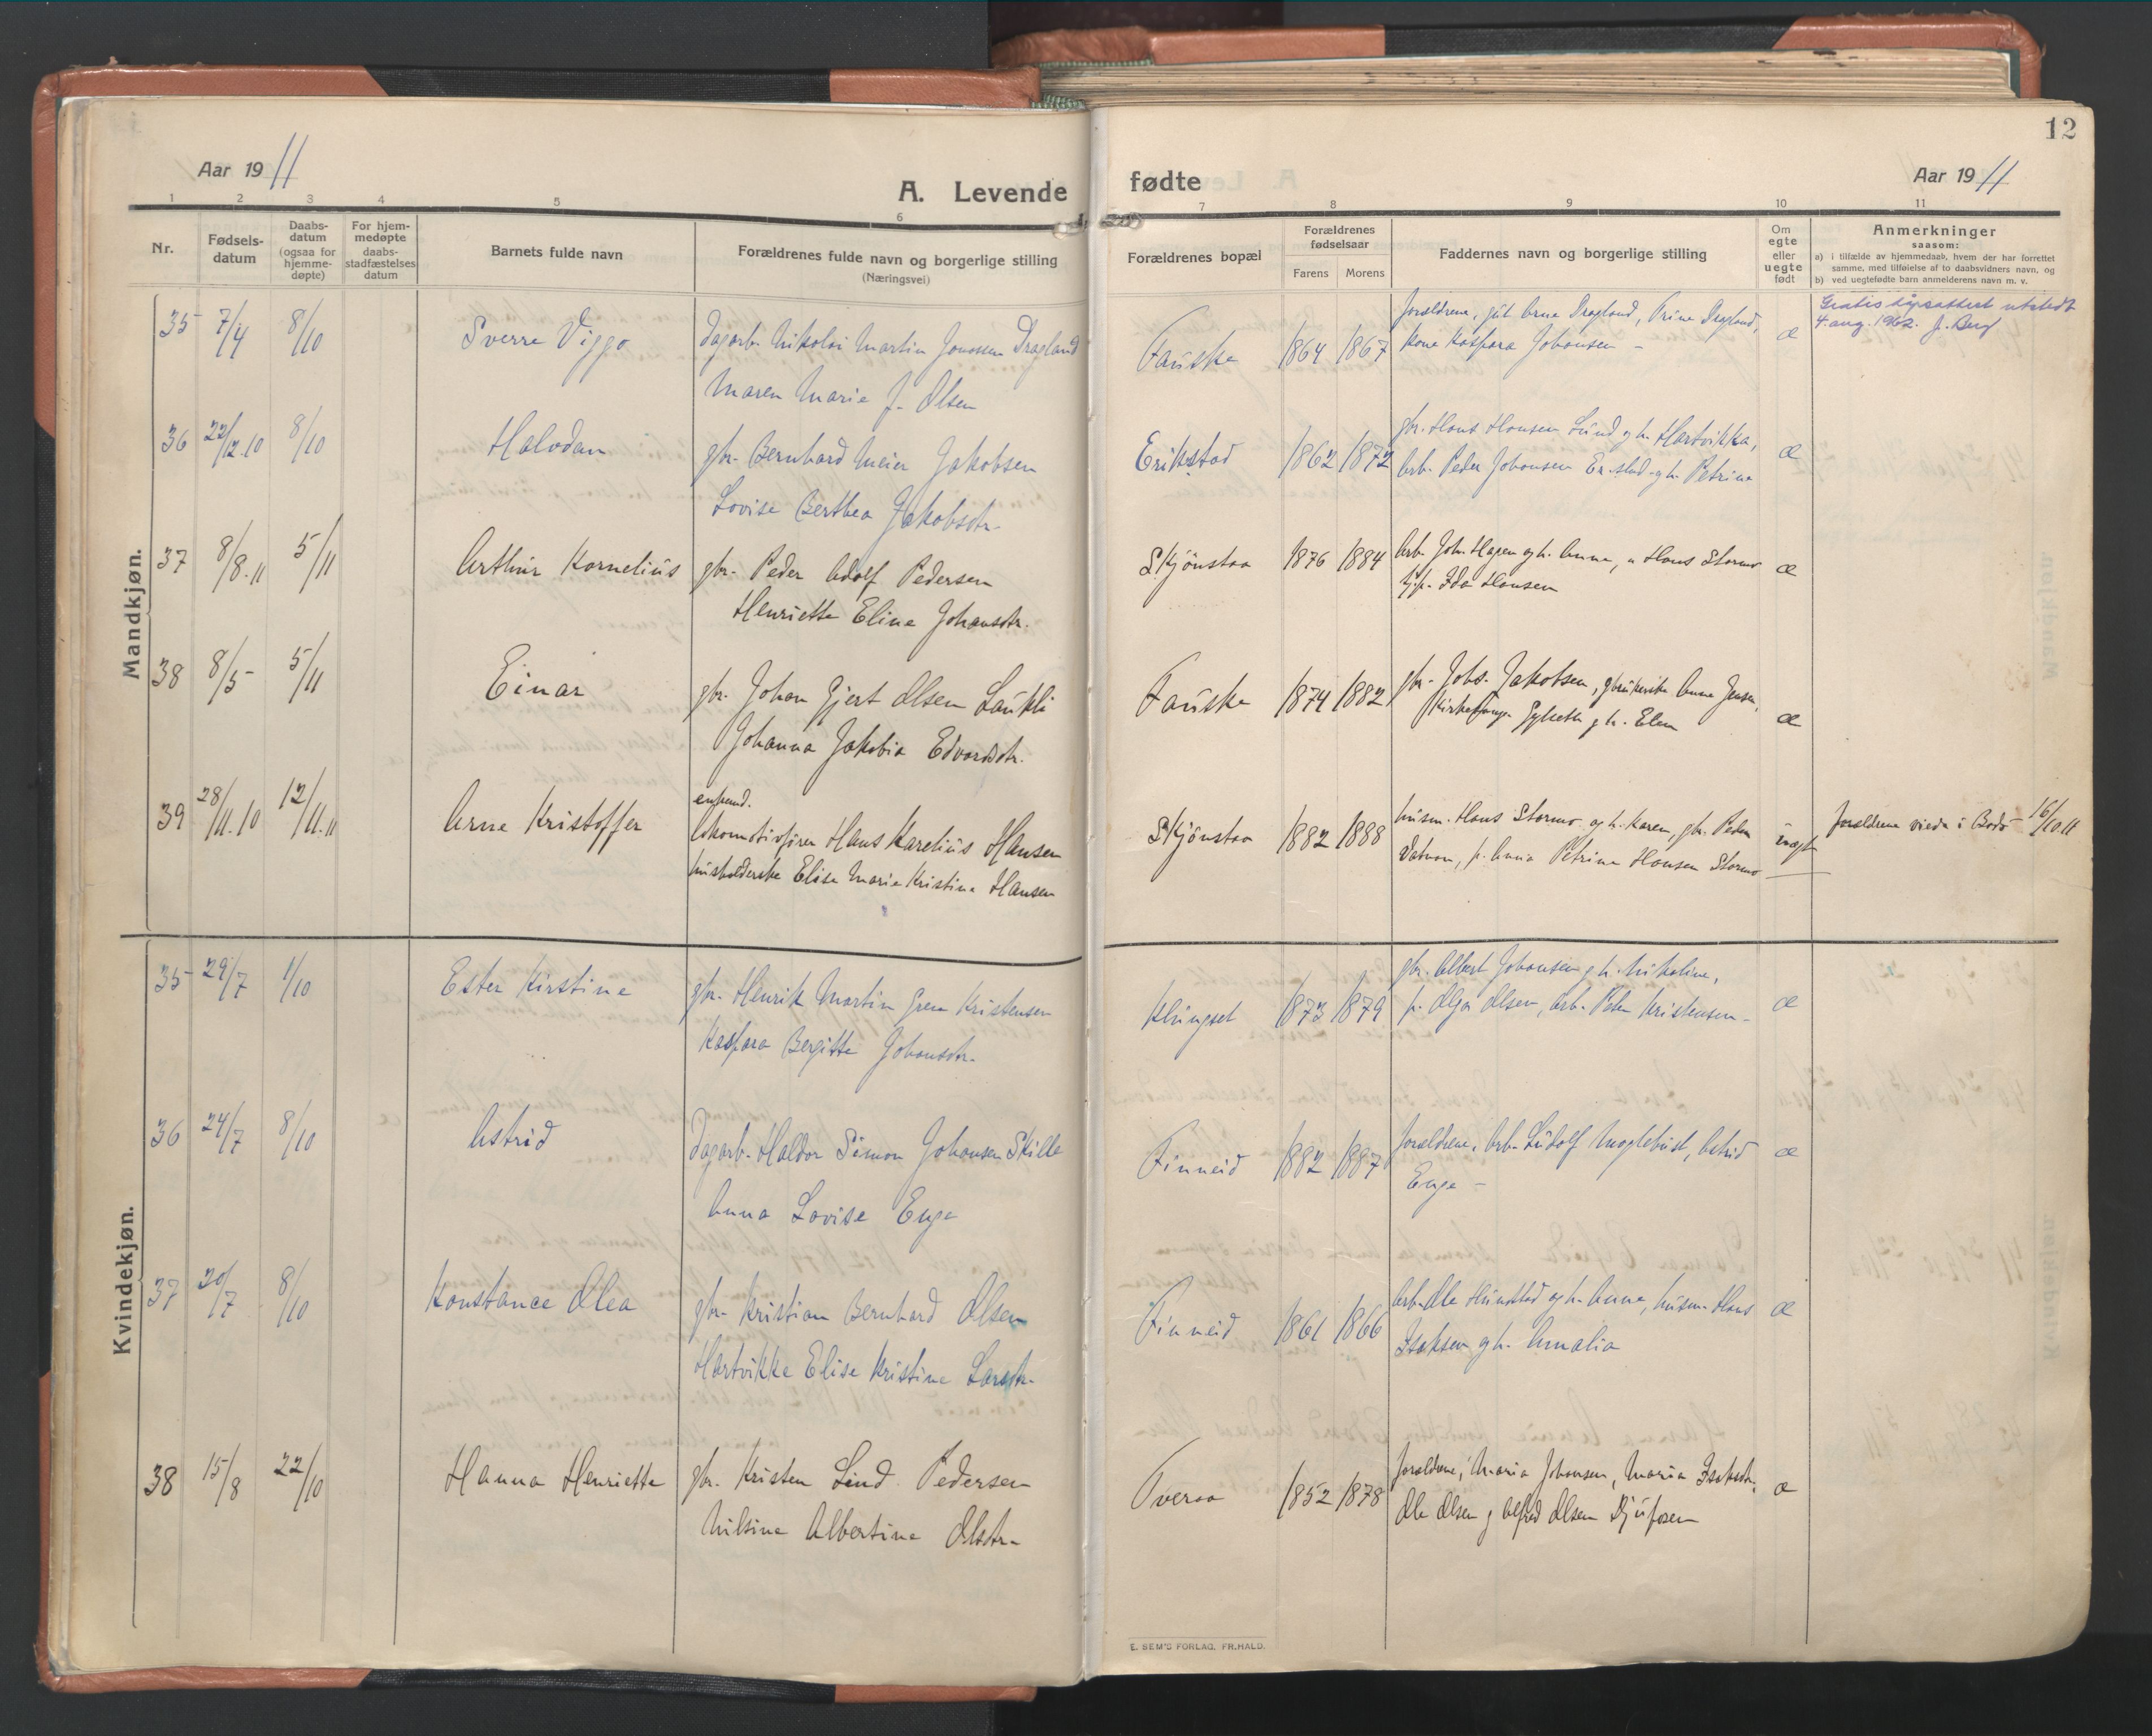 12
Aar 1911
A. Levende
fødte
Aar 1911
1 2 3 4 5 6 7 8 9 10 11
Nr.
Fødsels-
datum
Daabs-
datum
(ogsaa for
hjemme-
døpte)
For hjem-
medøpte
daabs-
stadfæstelses
datum
Barnets fulde navn
Forældrenes fulde navn og borgerlige stilling
(Næringsvei)
Forældrenes bopæl
Forældrenes
fødselsaar
Farens Morens
Faddernes navn og borgerlige stilling
Om
egte
eller
uegte
født
Anmerkninger
saasom:
a) i tilfælde av hjemmedaab, hvem der har forrettet
samme, med tilføielse af to daabsvidners navn, og
b) ved uegtefødte barn anmelderens navn m. v.
Mandkjøn.
35 7/4 8/10 Sverre Viggo
Dagarb. Nikolai Martin Jonassen Dragland
Maren Marie J. Olsen
Fauske 1864 1867
forældrene, gut Arne Dragland, Trine Dragland,
kone Kaspara Johansen -
æ
Gratis dåpsattest utstedt
4. aug. 1962. J. Berg
36 22/12.10 8/10 Halvdan
gbr. Bernhard Meier Jakobsen
Lovise Berthea Jakobsdtr.
Erikstad 1862 1872
gbr. Hans Hansen Lund og h. Hartvikka,
Arb. Peder Johansen Er.stad og h. Petrine
æ
37 8/8.11 5/11 Arthur Kornelius
gbr. Peder Adolf Pedersen
Henriette Eline Johansdtr.
Skjönstaa 1876 1884
Arb. Joh. Hagen og h. Anna, u Hans Stormo
tj.p. Ida Hansen
æ
38 8/5 5/11 Einar
gbr. Johan Gjert Olsen Laukli
Johanna Jakobia Edvardsdtr.
Fauske 1874 1882
gbr. Johs. Jakobsen, gbrukerske Anna Jensen,
Kirkesanger Sylseth g h. Elen
æ
39 28/11.10 12/11.11 Arne Kristoffer
enkemd.
lokomotivfører Hans Karelius Hansen
husholderske Elise Marie Kristine Hansen
Skjönstaa 1882 1888
husm. Hans Stormo og h. Karen, gbr. Peder
Vatnan, p. Anna Petrine Hansen Stormo
uægte
forældrene viede i Bodö 16/10.11
Kvindekjøn.
35 29/7 1/10 Ester Kirstine
gbr. Henrik Martin Grem Kristensen
Kaspara Bergitte Johansdtr.
Klungset 1873 1879
gbr. Albert Johansen g h. Nikoline,
p. Olga Olsen, Arb. Peder Kristensen -
æ
36 24/7 8/10 Astrid
Dagarb. Haldor Simon Johansen Skille
Anna Lovise Enge
Finneid 1882 1887
forældrene, Arb. Ludolf Moglebust, Astrid
Enge -
æ
37 20/7 8/10 Konstance Olea
gbr. Kristian Bernhard Olsen
Hartvikke Elise Kristine Larsdtr.
Finneid 1861 1866
Arb. Ole Hundstad og h. Anna, husm. Hans
Isaksen g h. Amalia
æ
38 15/8 22/10 Hanna Henriette
gbr. Kristen Lind Pedersen
Nilsine Albertine Olsdtr.
Tveraa 1852 1878
forældrene, Maria Johansen, Maria Isaksdtr,
Ole Olsen g Alfred Olsen Djuposen
æ
E. SEM'S FORLAG, FR.HALD.